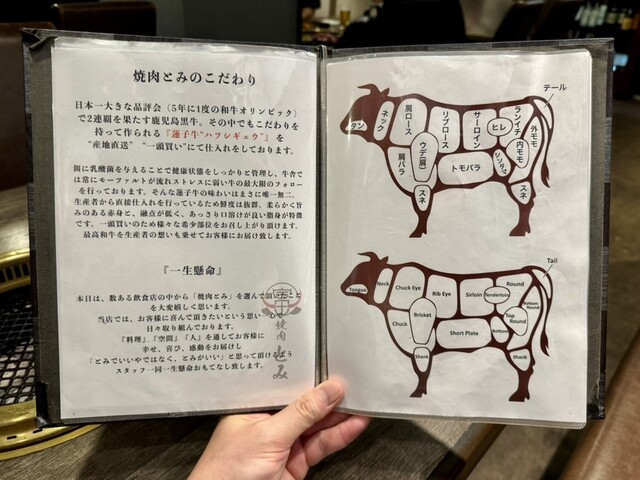 焼肉とみのこだわり
日本一大きな品評会（5年に1度の和牛オリンピック）
で2連覇を果たす鹿児島黒牛。その中でもこだわりを
持って作られる『蓮子牛"ハツシギュウ"』を
"産地直送" "一頭買い"にて仕入れをしております。
餌に乳酸菌を与えることで健康状態をしっかりと管理し、牛舎で
は常にモーツァルトが流れストレスに弱い牛の最大限のフォロー
を行っております。そんな蓮子牛の味わいはまさに唯一無二。
生産者から直接仕入れを行っているため鮮度は抜群、柔らかく旨
みのある赤身と、融点が低く、あっさり口溶けが良い脂身が特徴
です。一頭買いのため様々な希少部位をお召し上がり頂けます。
最高和牛を生産者の想いも乗せてお客様にお届け致します。
『一生懸命』
本日は、数ある飲食店の中から「焼肉とみ」を選んで頂いたこと
を大変嬉しく思います。
当店では、お客様に喜んで頂きたいという思い
日々取り組んでおります。
『料理』『空間』『人』を通してお客様に
幸せ、喜び、感動をお届けし
「とみでいいやではなく、とみがいい」と思って頂けるよう
スタッフ一同一生懸命おもてなし致します。
焼肉
とみ
テール
タン
ネック
肩ロース
リブロース
サーロイン
ヒレ
ランイチ
外モモ
内モモ
シンタマ
肩バラ
ウデ(肩)
トモバラ
スネ
スネ
Tail
Tongue
Neck
Chuck Eye
Rib Eye
Sirloin
Tenderloin
Round
Bottom Round
Top Round
Bottom
Chuck
Brisket
Short Plate
Shank
Shank